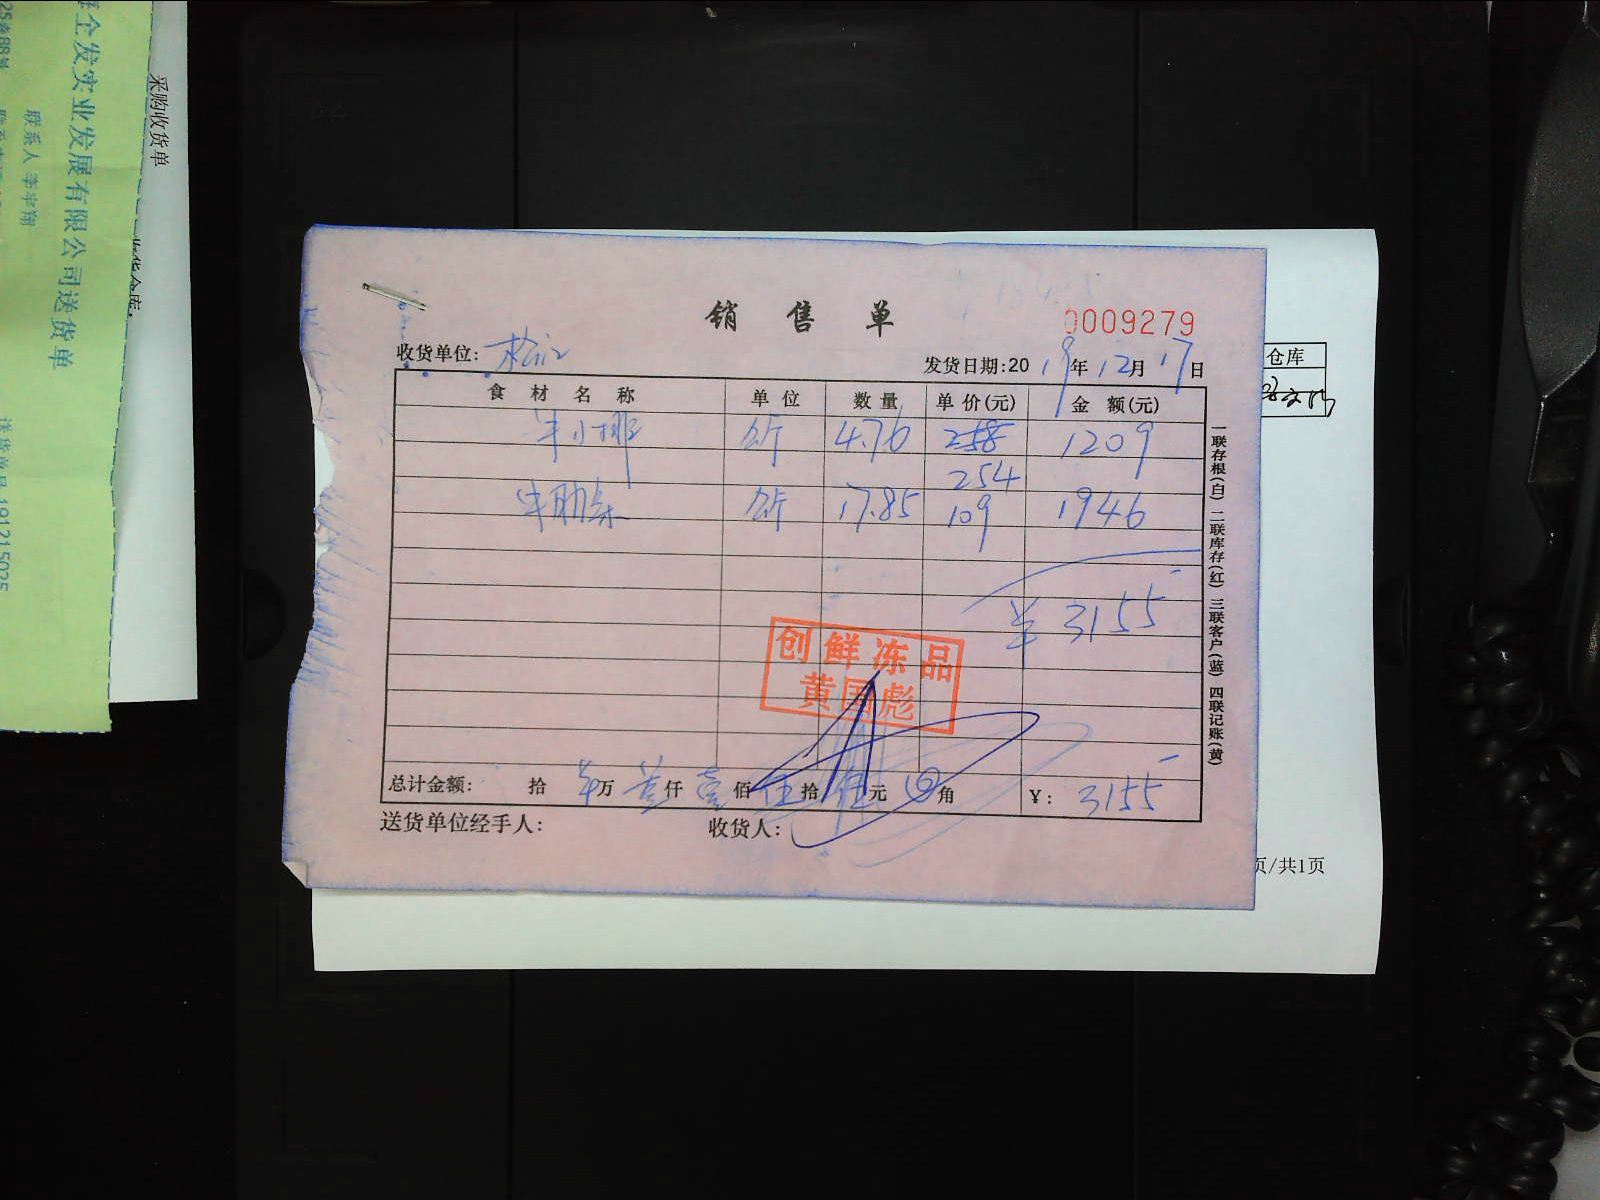 全发实业发展有限公司送货单
联系人 李半翔
采购收货单
收货仓库:
销 售 单
0009279
收货单位: 松江
发货日期:2019年12月17日
仓库
食 材 名 称 单 位 数 量 单 价(元) 金 额(元)
牛小排 公斤 4.76 258 1209
254
牛肋条 公斤 17.85 109 1946
¥ 3155
创鲜冻品
黄国彪
总计金额: 拾 万 叁仟 壹佰 伍拾 伍元 角 ¥: 3155
送货单位经手人: 收货人:
一联存根(白) 二联库存(红) 三联客户(蓝) 四联记账(黄)
页/共1页